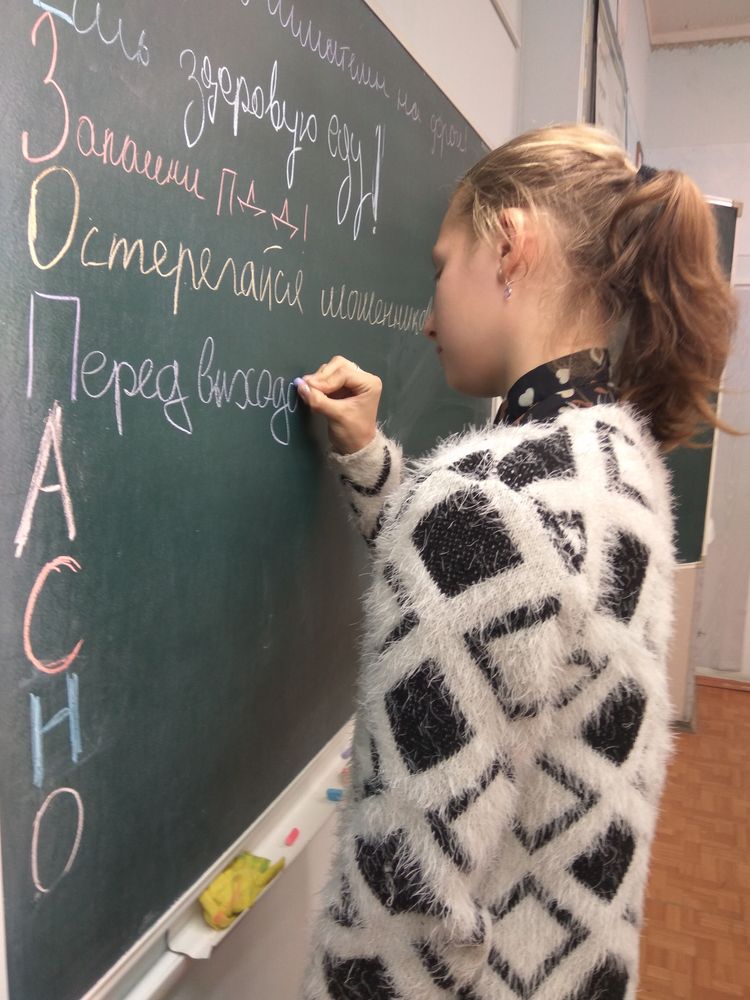 внимателен на дороге
Ешь здоровую еду!
Запомни ПДД!
Остерегайся мошенников
Перед выходо
А
С
Н
О